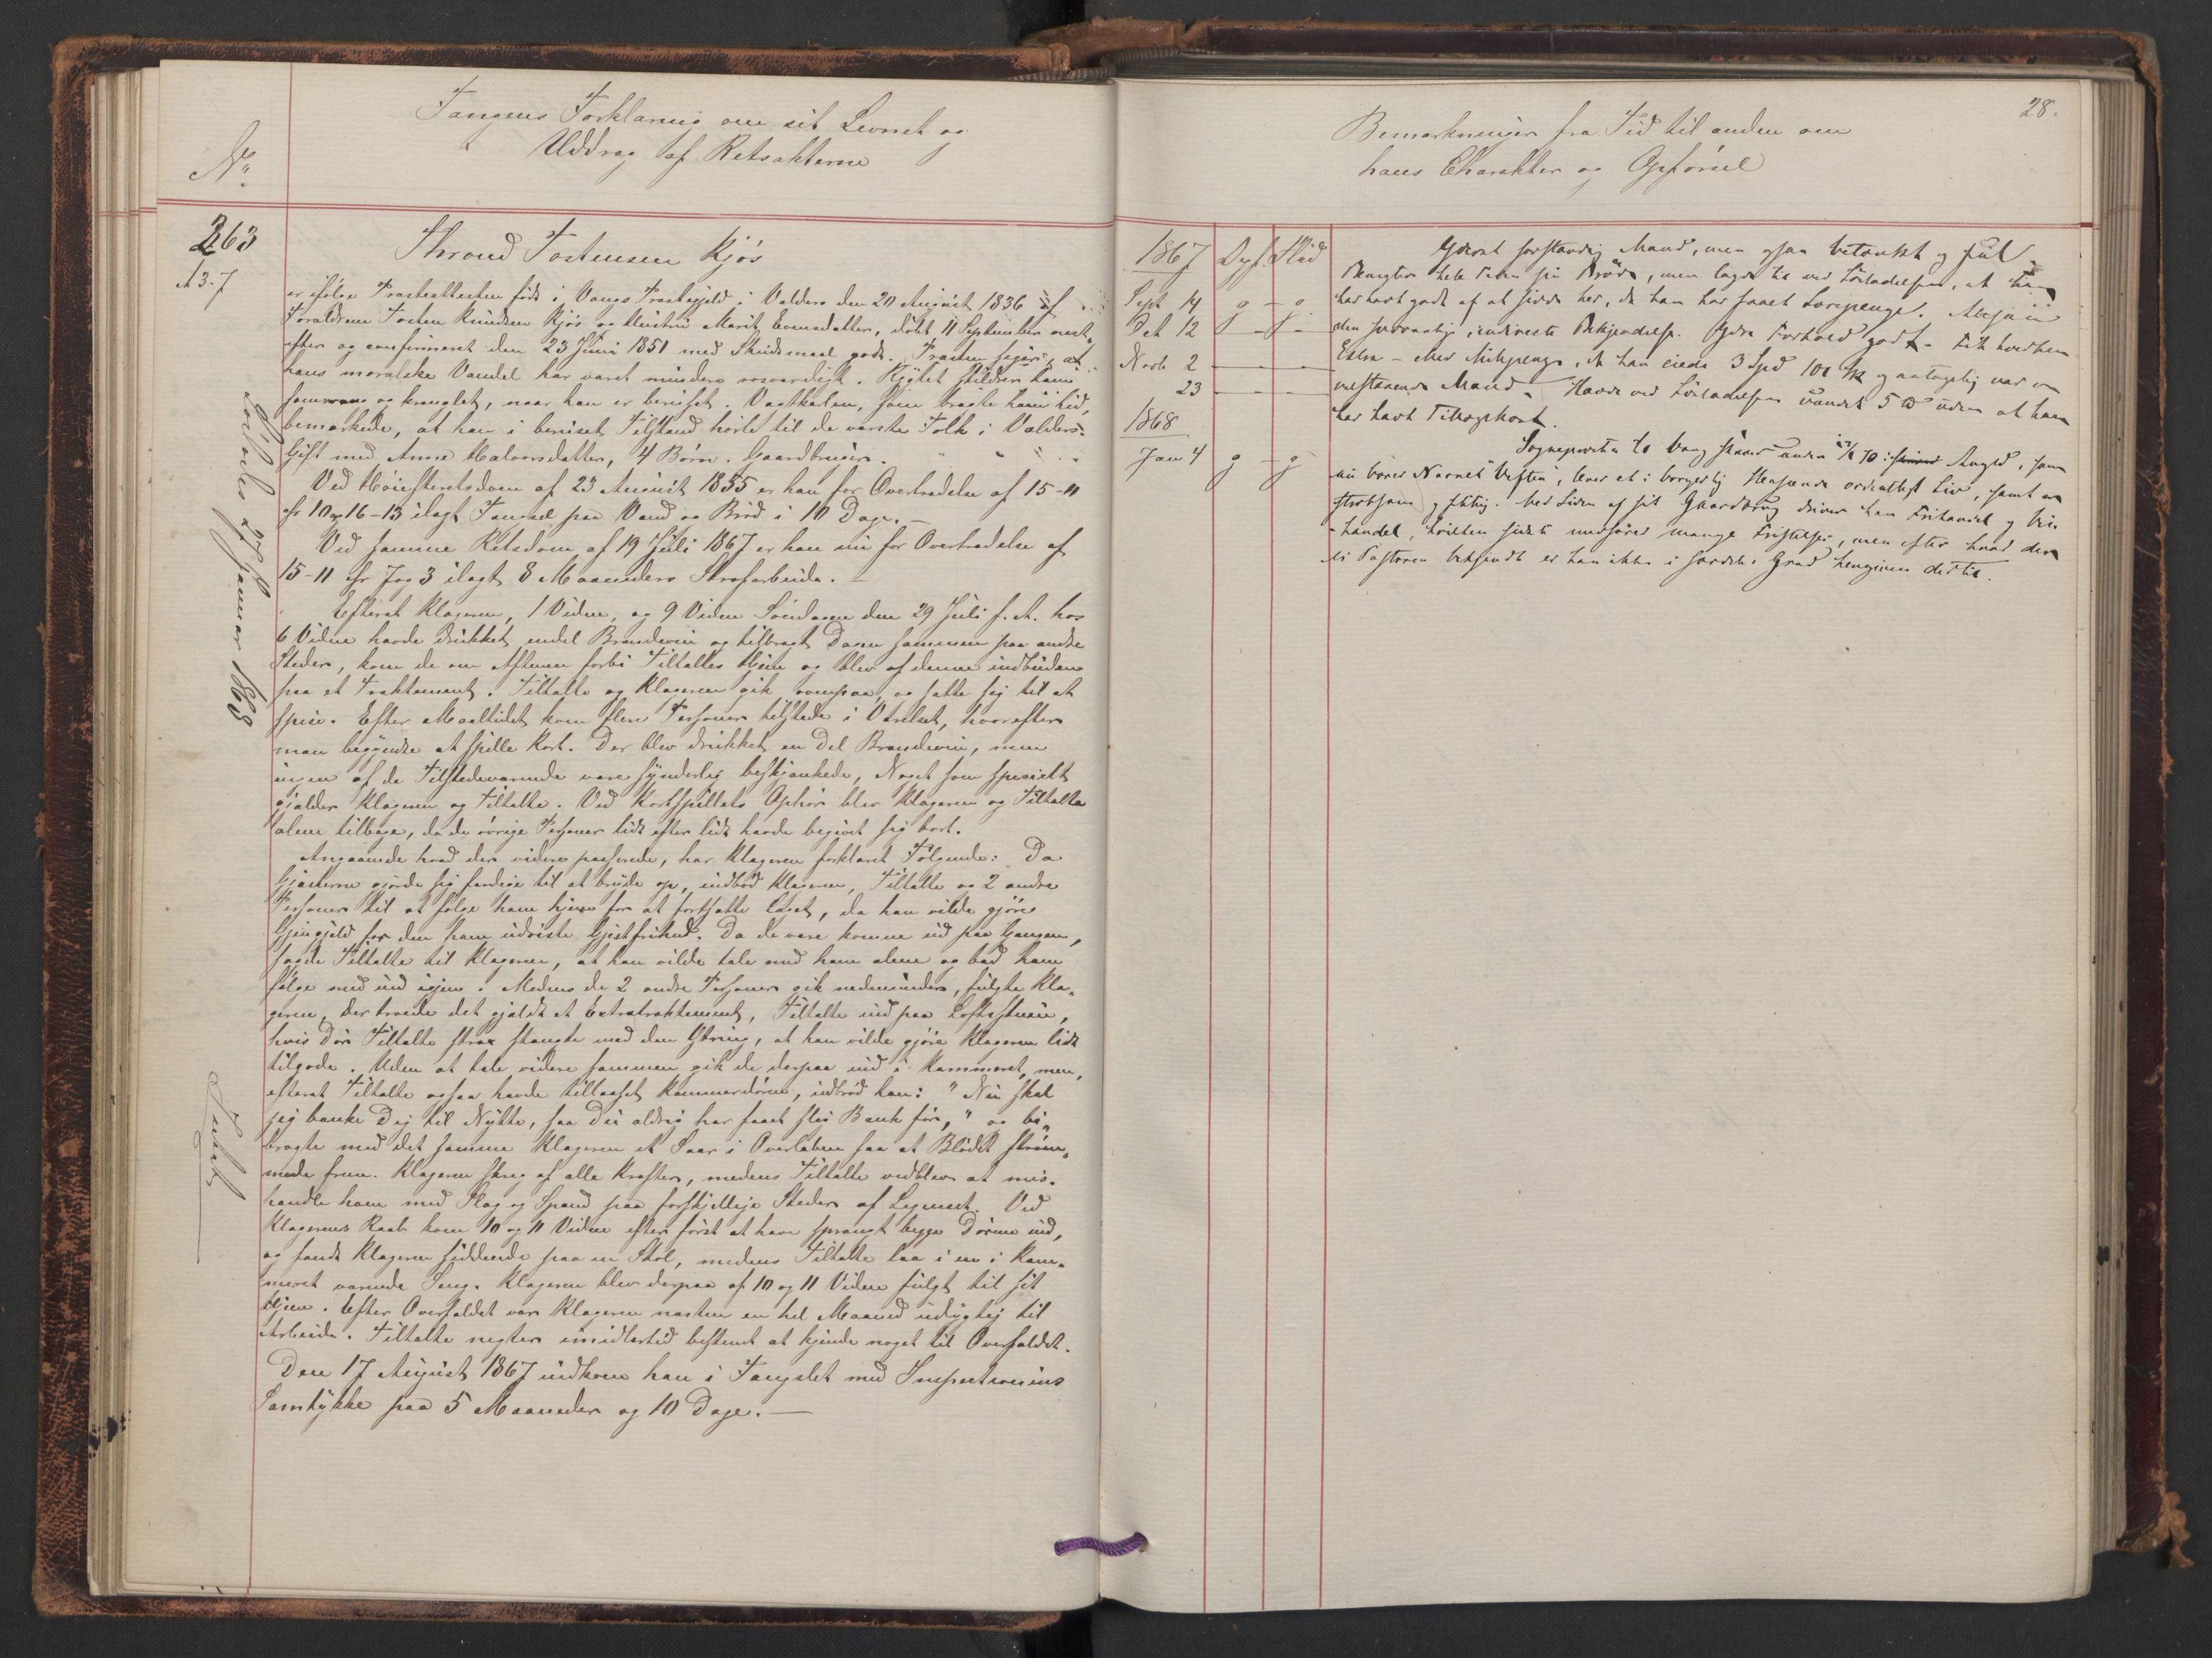 Fangens Forklaring om sit Levnet og
Uddrag af Retsakterne
No.
263
A 3.7
Løslades 27 Januar 1868
Intet
Thrond Tostensen Kjøs
er ifølge Præsteattesten født i Vangs Præstegjeld i Valders den 20 August 1836 af
Forældrene Tosten Knudsen Kjøs og Hustru Marit Evensdatter, døbt 11 September næst-
efter og confirmeret den 23 Juni 1851 med Skudsmaal godt. Præsten siger, at
hans moralske Vandel har været mindre rosværdigt. Rygtet skildrer ham
som og kranglet, naar han er beruset. Vagtkarlen, som bragte ham hid,
bemærkede, at han i beruset Tilstand hørte til de værste Folk i Valders.
Gift med Anne Halvorsdatter, 4 Børn. Gaardbruger.
Ved Høiesteretsdom af 23 August 1855 er han for Overtrædelse af 15-11
cfr 10 og 16-13 ilagt Fængsel paa Vand og Brød i 10 Dage.
Ved samme Retsdom af 19 Juli 1867 er han nu for Overtrædelse af
15-11 cfr 7 og 3 ilagt 8 Maaneders Strafarbeide.
Efterat Klageren, 1 Vidne, og 9 Vidne Søndagen den 29 Juli f. A. hos
6 Vidne havde drukket endel Brændeviin og tilbragt Dagen sammen paa andre
Steder, kom de om Aftenen forbi Tiltaltes Huse og blev af denne indbudne
paa et Traktement. Tiltalte og Klageren gik ovenpaa, og satte sig til at
spise. Efter Maaltidet kom flere Personer tilstede i Værelset, hvorefter
man begyndte at spille Kort. Der blev drukket en Del Brændeviin, men
ingen af de Tilstedeværende vare synderlig beskjænkede, Noget som specielt
gjælder Klageren og Tiltalte. Ved Kortspillets Ophør blev Klageren og Tiltalte
alene tilbage, da de øvrige Personer lidt efter lidt havde begivet sig bort.
Angaaende hvad der videre passerede, har Klageren forklaret Følgende: Da
Gjæsterne gjorde sig færdige til at bryde op, indbød Klageren, Tiltalte og 2 andre
Personer til at følge ham hjem for at fortsætte Laget, da han vilde gjøre
Gjengjeld for den ham udviste Gjestfrihed. Da de vare komne ud paa Gangen,
sagde Tiltalte til Klageren, at han vilde tale med ham alene og bad ham
følge med ind igjen. Medens de 2 andre Personer gik nedenunder, fulgte Kla-
geren, der troede det gjaldt et Extratraktement, Tiltalte ind paa Loftsstuen,
hvis Dør Tiltalte strax stængte med den Ytring, at han vilde gjøre Klageren lidt
tilgode. Uden at tale videre sammen gik de derpaa ind i Kammeret, men,
efterat Tiltalte ogsaa havde tillaaset Kammerdøren, udbrød han: "Nu skal
jeg banke Dig til Nytte, saa Du aldrig har faaet slig Bank før," og bi-
bragte med det samme Klageren et Saar i Overlæben saa at Blodet strøm-
mede frem. Klageren skreg af alle Kræfter, medens Tiltalte vedblev at mis-
handle ham med Slag og Spænd paa forskjellige Steder af Legemet. Ved
Klagerens Raab kom 10 og 11 Vidne efter først at have sprængt begge Dørene ind,
og fandt Klageren siddende paa en Stol, medens Tiltalte laa i en i Kam-
meret værende Seng. Klageren blev derpaa af 10 og 11 Vidne fulgt til sit
Hjem. Efter Overfaldet var Klageren næsten en hel Maaned udygtig til
Arbeide. Tiltalte negter imidlertid bestemt at kjende noget til Overfaldet.
Den 17 August 1867 indkom han i Fængslet med Inspectionens
Samtykke paa 5 Maaneder og 10 Dage.
28.
Bemærkninger fra Tid til anden om
hans Charakter og Opførsel
1867 Opf. Flid
Sept 14 g - g
Oct 12 g - g
Novb 2 - - -
23 - - -
1868
Jan 4 g - g
Yderst forstandig Mand, men ogsaa betænkt og ful
Nægter hele Tiden sin Brøde, men lagde til ved Løsladelsen, at han
har havt godt af at sidde her, da han har faaet Lærepenge.
den indirecte Bekjendelse. Ydre Forhold godt. Fik hverken
Extra- eller Reisepenge, da han eiede 3 Spd 101 sk og antagelig var en
velstaaende Mand. Havde ved Løsladelsen vundet 5 ℔ uden at have
har havt Tillægskost.
Sognepresten til Vang skriver under 70: Angjd, som
nu bærer Navnet Veftin, lever et i borgerlig Henseende ordentligt Liv, samt er
stræbsom og flittig. Ved Siden af sit Gaardbrug driver han Frihandel og
-handel, hvilken sidste medfører mange Fristelser, men efter hvad der
er Pastoren bekjendt er han ikke i høieste Grad hengiven dertil.